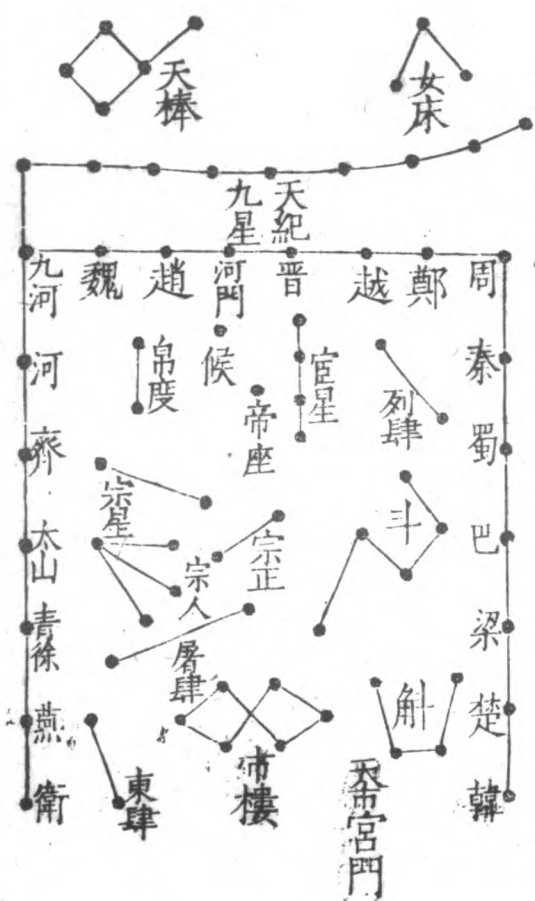 女床
天棒
天紀
九星
周
鄭
越
晉
河門
趙
魏
九河
秦
蜀
巴
梁
楚
韓
河
齊
太山
青徐
燕
衛
列肆
宦星
候
帛度
帝座
斗
宗正
宗星
宗人
屠肆
斛
市樓
東肆
天市宮門